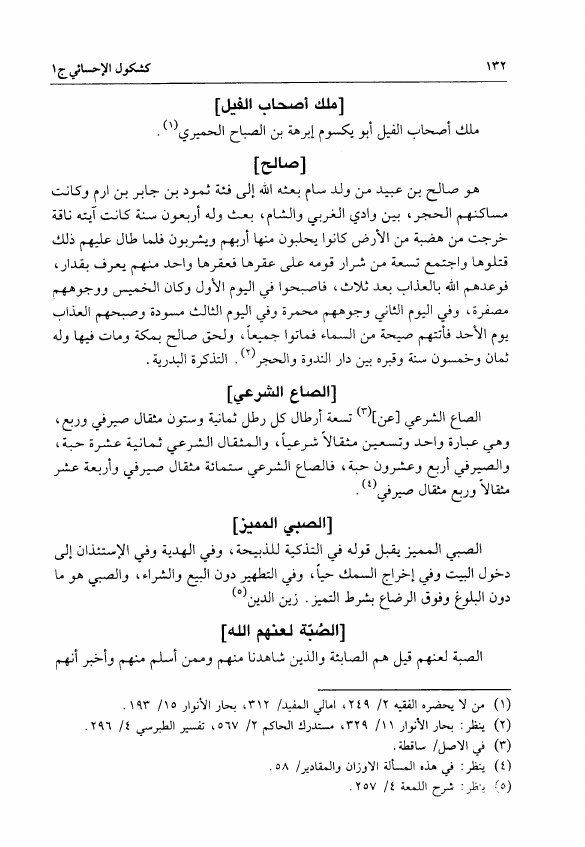 ١٣٢ كشكول الإحسائي ج١
[ملك أصحاب الفيل]
ملك أصحاب الفيل أبو يكسوم إبرهة بن الصباح الحميري(١).
[صالح]
هو صالح بن عبيد من ولد سام بعثه الله إلى فئة ثمود بن جابر بن ارم وكانت
مساكنهم الحجر، بين وادي الغربي والشام، بعث وله أربعون سنة كانت آيته ناقة
خرجت من هضبة من الأرض كانوا يحلبون منها أربهم ويشربون فلما طال عليهم ذلك
قتلوها واجتمع تسعة من شرار قومه على عقرها فعقرها واحد منهم يعرف بقدار،
فوعدهم الله بالعذاب بعد ثلاث، فاصبحوا في اليوم الأول وكان الخميس ووجوههم
مصفرة، وفي اليوم الثاني وجوههم محمرة وفي اليوم الثالث مسودة وصبحهم العذاب
يوم الأحد فأتتهم صيحة من السماء فماتوا جميعاً، ولحق صالح بمكة ومات فيها وله
ثمان وخمسون سنة وقبره بين دار الندوة والحجر(٢). التذكرة البدرية.
[الصاع الشرعي]
الصاع الشرعي [عن](٣) تسعة أرطال كل رطل ثمانية وستون مثقال صيرفي وربع،
وهي عبارة واحد وتسعين مثقالاً شرعياً، والمثقال الشرعي ثمانية عشرة حبة،
والصيرفي أربع وعشرون حبة، فالصاع الشرعي ستمائة مثقال صيرفي وأربعة عشر
مثقالاً وربع مثقال صيرفي(٤).
[الصبي المميز]
الصبي المميز يقبل قوله في التذكية للذبيحة، وفي الهدية وفي الإستئذان إلى
دخول البيت وفي إخراج السمك حياً، وفي التطهير دون البيع والشراء، والصبي هو ما
دون البلوغ وفوق الرضاع بشرط التميز. زين الدين(٥)
[الصُبّة لعنهم الله]
الصبة لعنهم قيل هم الصابئة والذين شاهدنا منهم وممن أسلم منهم وأخبر أنهم
(١) من لا يحضره الفقيه ٢/ ٢٤٩، امالي المفيد/ ٣١٢، بحار الأنوار ١٥/ ١٩٣.
(٢) ينظر: بحار الأنوار ١١/ ٣٢٩، مستدرك الحاكم ٢/ ٥٦٧، تفسير الطبرسي ٤/ ٢٩٦.
(٣) في الاصل/ ساقطة.
(٤) ينظر: في هذه المسألة الاوزان والمقادير/ ٥٨.
(٥) ينظر: شرح اللمعة ٤/ ٢٥٧.